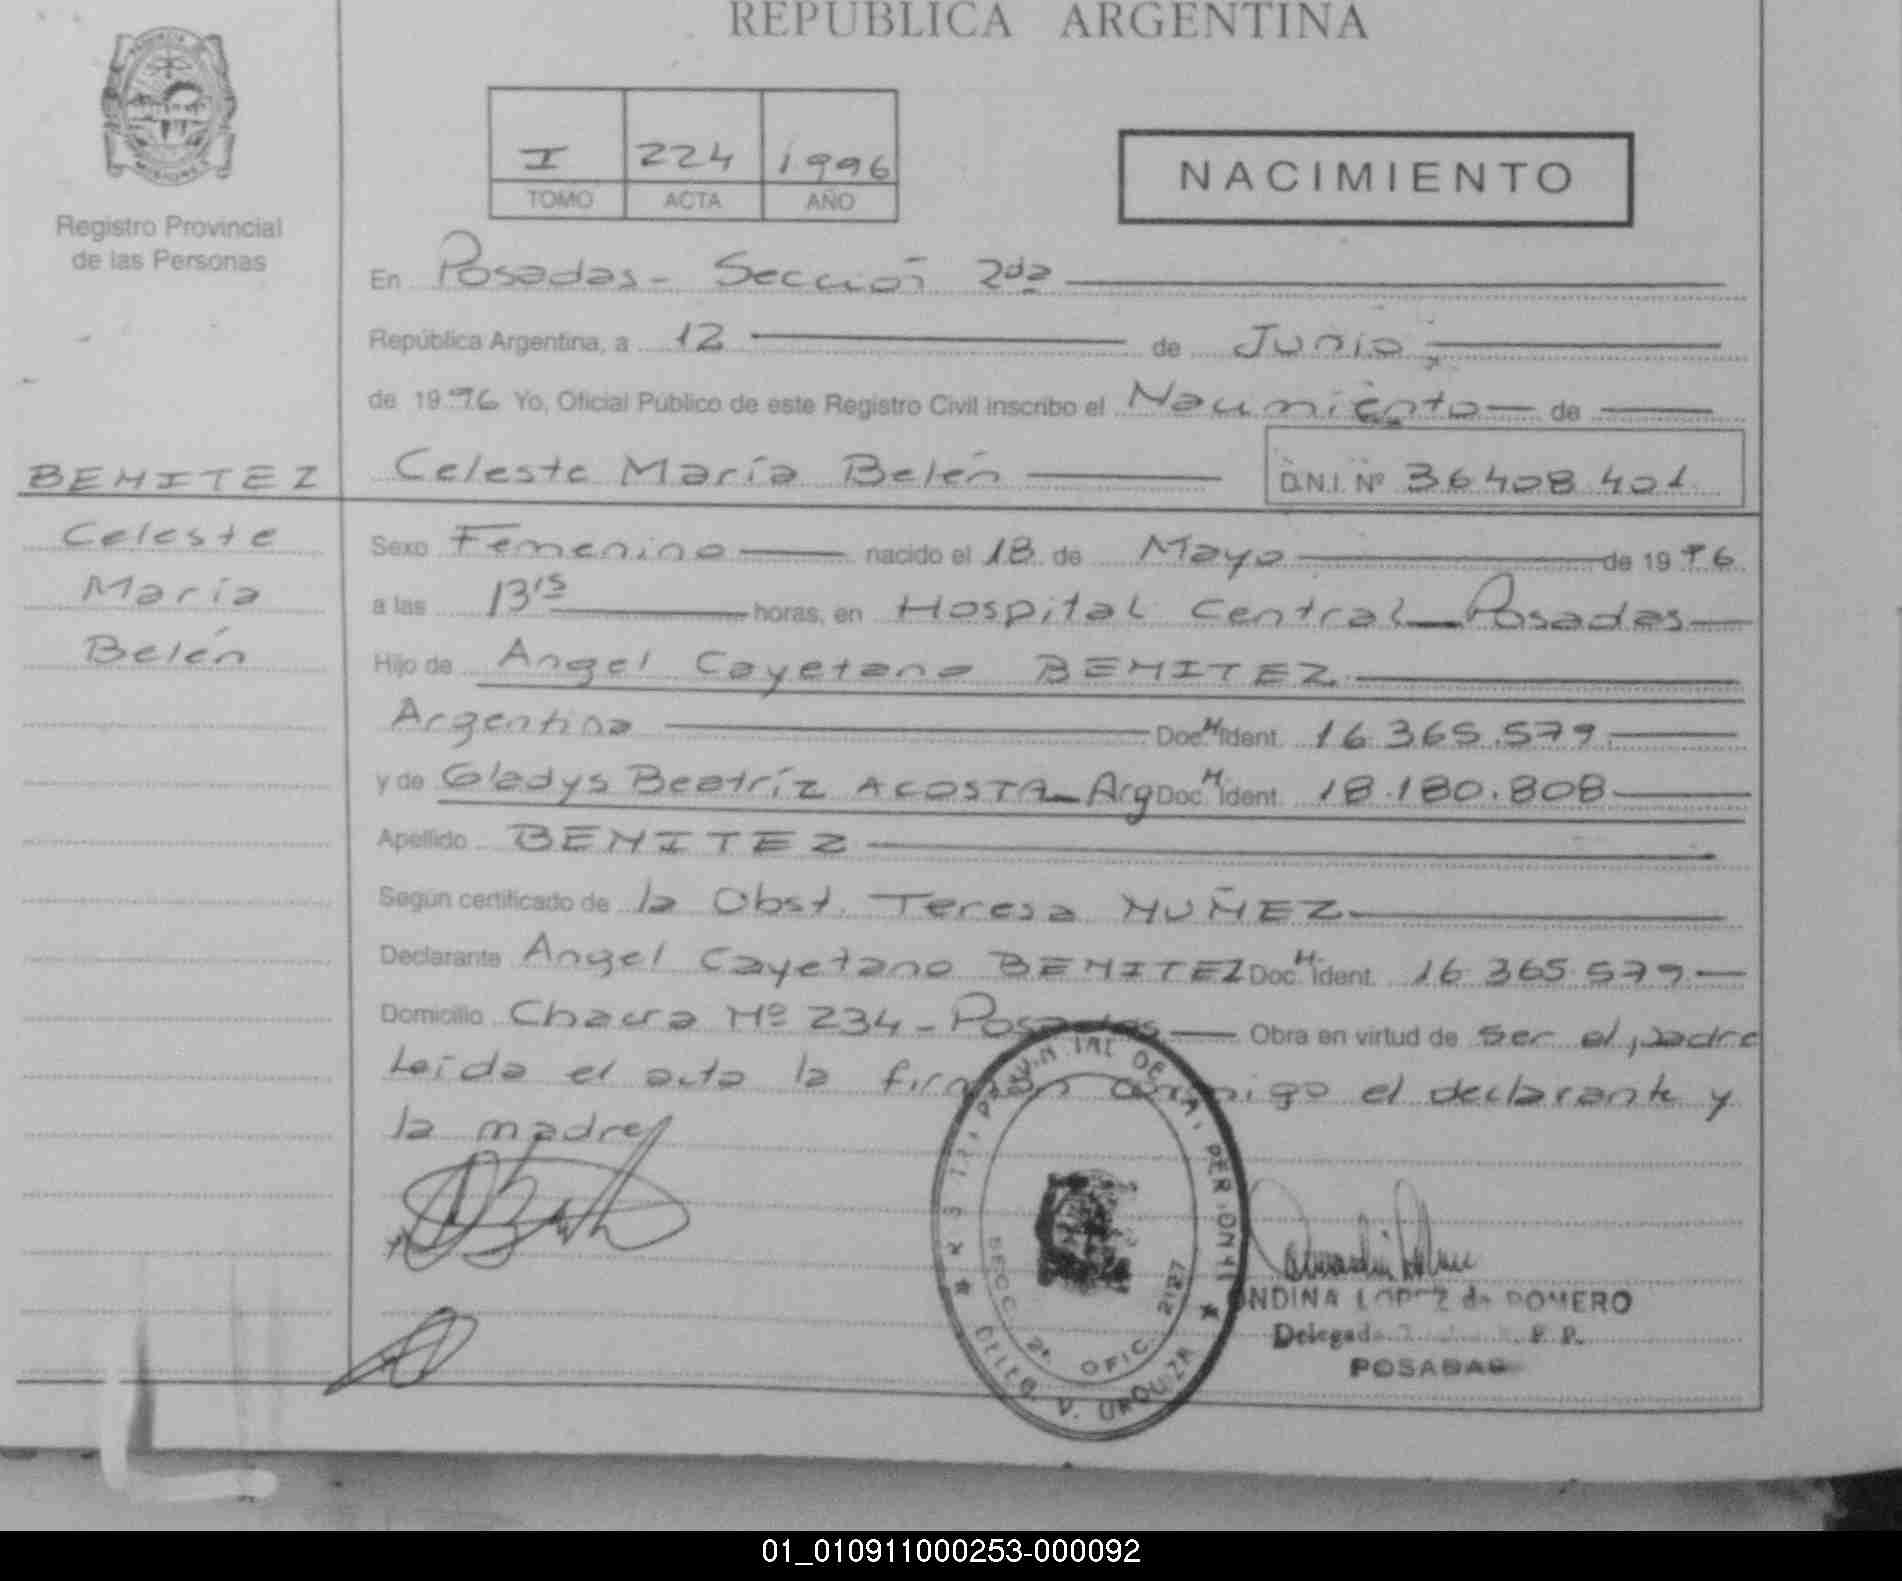 REPUBLICA ARGENTINA
PROVINCIA DE MISIONES
Registro Provincial
de las Personas
I 224 1996
TOMO ACTA AÑO
NACIMIENTO
En Posadas - Sección 2da
República Argentina, a 12 de Junio
de 1996 Yo, Oficial Público de este Registro Civil inscribo el Nacimiento de
BENITEZ Celeste María Belén D.N.I. Nº 36 408 401
Celeste
María
Belén
Sexo Femenino nacido el 18 de Mayo de 1996
a las 13,15 horas, en Hospital Central - Posadas
Hijo de Angel Cayetano BENITEZ
Argentina Doc. N Ident. 16.365.579
y de Gladys Beatríz ACOSTA - Arg Doc. N Ident. 18.180.808
Apellido BENITEZ
Según certificado de la Obst. Teresa NUÑEZ
Declarante Angel Cayetano BENITEZ Doc. N Ident. 16.365.579
Domicilio Chacra Nº 234 - Posadas Obra en virtud de ser el padre
Leída el acta la firman conmigo el declarante y
la madre
SECC. 2ª OFIC. 2127
V. URQUIZA
ONDINA LOPEZ de ROMERO
POSADAS
01_010911000253-000092